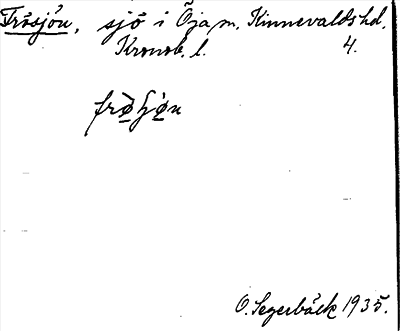 Frösjön, sjö i Öja sn, Kinnevalds hd,
Kronob. l. 4.
O. Segerbäck 1935.